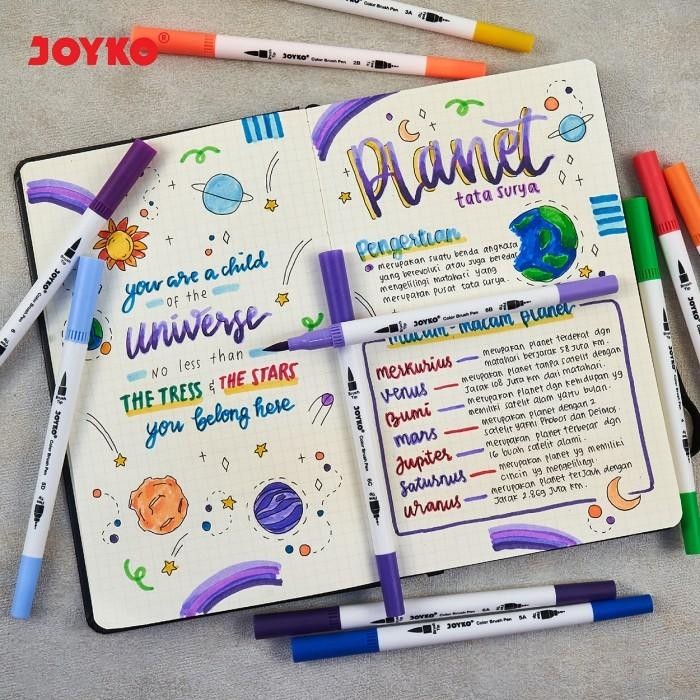 JOYKO®
JOYKO Color Brush Pen 2B Brush Tip
Color Brush Pen 3A
Planet
tata surya
Pengertian
merupakan suatu benda angkasa
yang berevolusi atau juga beredar
mengelilingi matahari yang
merupakan pusat tata surya.
JOYKO Color Brush Pen 6B Brush Tip
Macam-macam planet
merkurius — merupakan planet terdekat dgn
matahari berjarak 58 juta km.
venus — merupakan planet tanpa satelit dengan
jarak 108 juta km dari matahari.
Bumi — merupakan planet dgn kehidupan yg
memiliki satelit alam yaitu bulan.
mars — merupakan planet dengan 2
satelit yaitu Phobos dan Deimos.
Jupiter — merupakan planet terbesar dgn
16 buah satelit alami.
Saturnus — merupakan planet yg memiliki
cincin yg mengelilingi.
uranus — merupakan planet terjauh dengan
jarak 2.869 juta km.
you are a child
of the
universe
no less than
THE TRESS & THE STARS
you belong here
Brush Tip JOYKO Color Brush Pen 5D
Brush Tip JOYKO Color Brush Pen 6C
Color Brush Pen 6A
JOYKO Color Brush Pen 5A